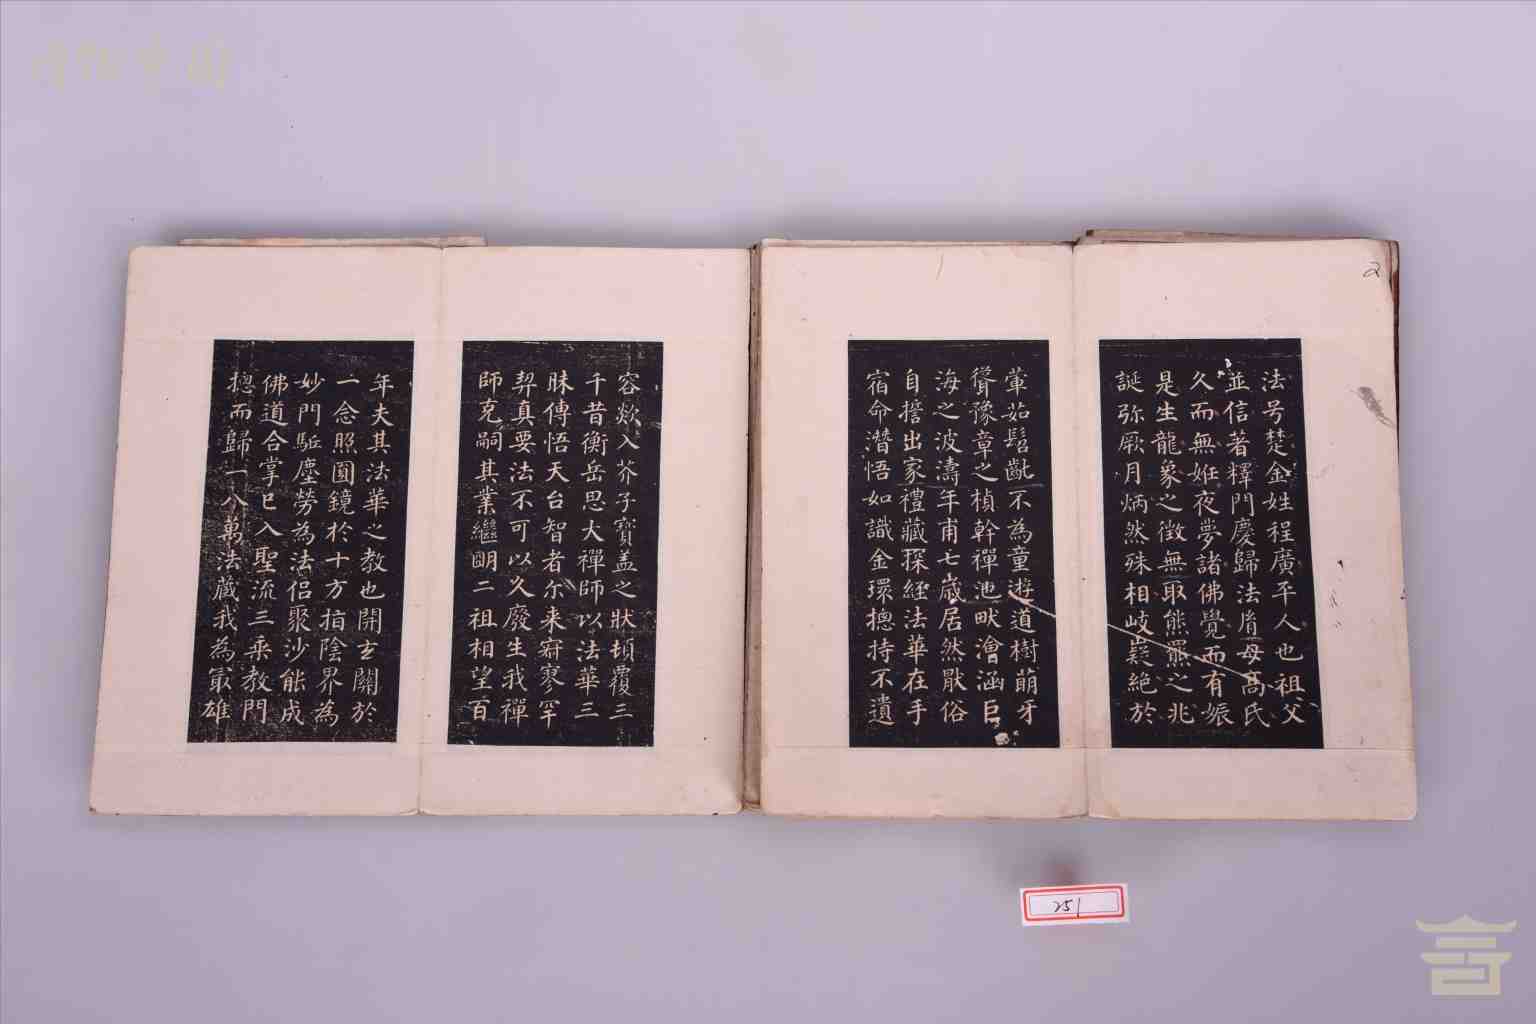 法号楚金姓程廣平人也祖父
並信著釋門慶歸法胤母高氏
久而無姙夜夢諸佛覺而有娠
是生龍象之徵無取熊羆之兆
誕弥厥月炳然殊相岐嶷絕於
葷茹髫齓不為童遊道樹萌牙
聳豫章之楨幹禪池畎澮涵巨
海之波濤年甫七歲居然猒俗
自擔出家禮藏探經法華在手
宿命潛悟如識金環摠持不遺
容欻入芥子寶盖之狀頓覆三
千昔衡岳思大禪師以法華三
昧傳悟天台智者尔来寂寥罕
契真要法不可以久廢生我禪
師克嗣其業繼明二祖相望百
年夫其法華之教也開玄關於
一念照圓鏡於十方指陰界為
妙門駈塵勞為法侣聚沙能成
佛道合掌已入聖流三乘教門
摠而歸一八萬法藏我為冣雄
2
251